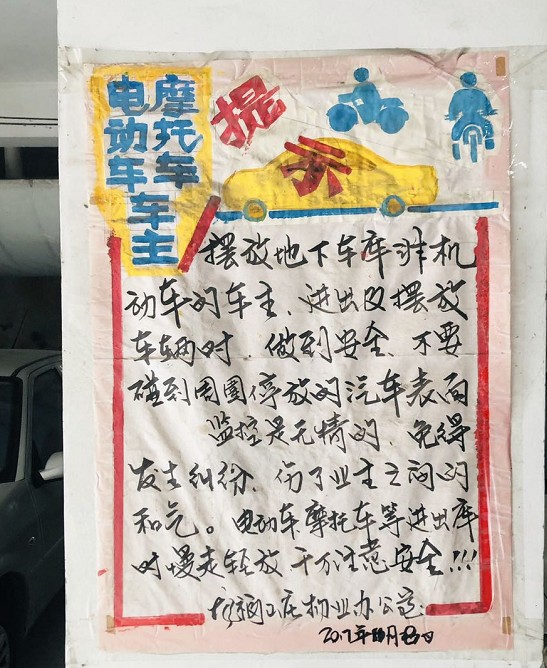 摩托车
电动车车主
提示
摆放地下车库非机
动车的车主、进出及摆放
车辆时、做到安全、不要
碰到周围停放的汽车表面
监控是无情的、免得
发生纠纷、伤了业主之间的
和气。电动车摩托车等进出库
时慢走轻放千万注意安全!!!
物业办公室